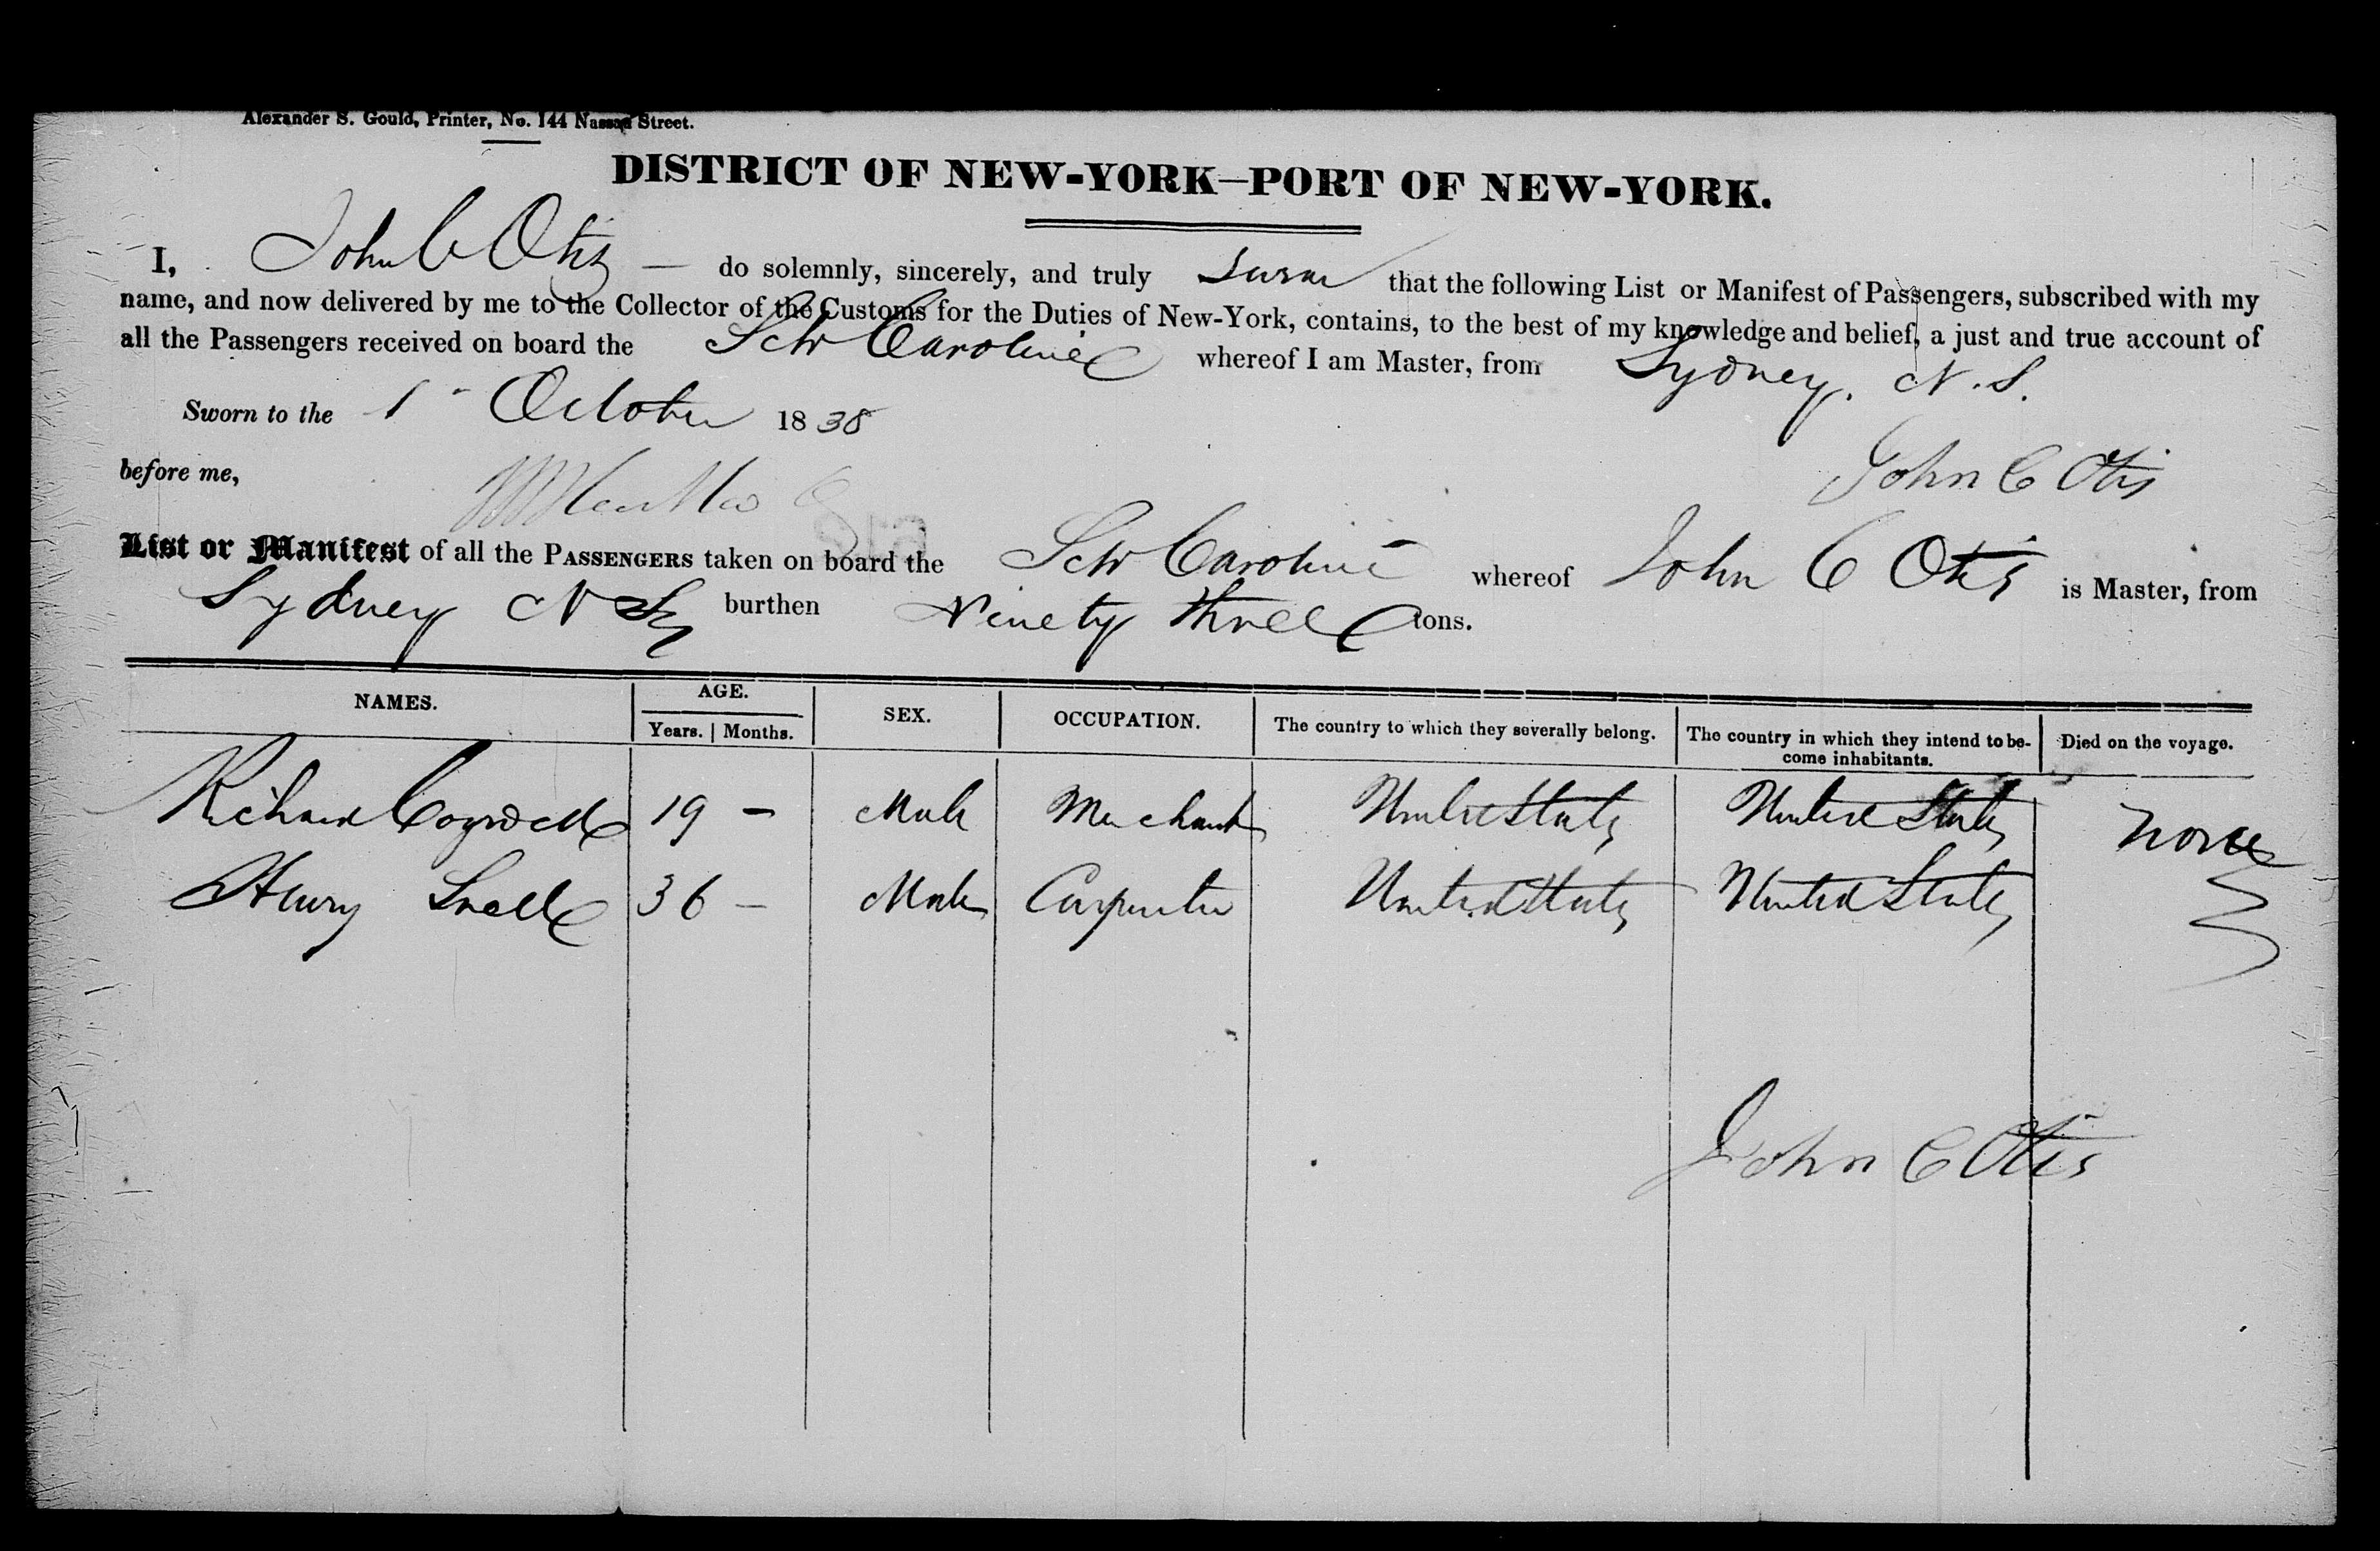 Alexander S. Gould, Printer, No. 144 Nassau Street.
DISTRICT OF NEW-YORK—PORT OF NEW-YORK.
I, John C Otis — do solemnly, sincerely, and truly swear that the following List or Manifest of Passengers, subscribed with my
name, and now delivered by me to the Collector of the Customs for the Duties of New-York, contains, to the best of my knowledge and belief, a just and true account of
all the Passengers received on board the Schr Caroline whereof I am Master, from Sydney. N.S.
Sworn to the 1 October 1838
before me,
John C Otis
List or Manifest of all the PASSENGERS taken on board the Schr Caroline whereof John C Otis is Master, from
Sydney N S burthen Ninety three tons.
NAMES. AGE. Years. | Months. SEX. OCCUPATION. The country to which they severally belong. The country in which they intend to become inhabitants. Died on the voyage.
Richard Cogswell 19 — Male Merchant United States United States None
Henry Snell 36 — Male Carpenter United States United States
John C Otis